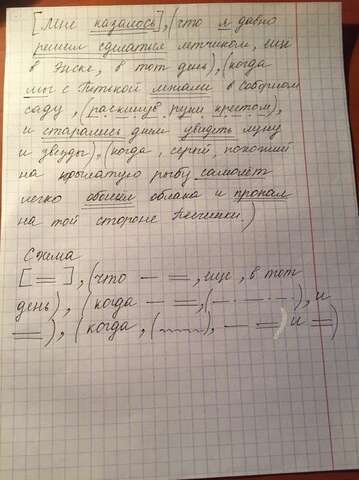 [Мне казалось], (что я давно
решил сделаться летчиком, еще
в Энске, в тот день), (когда
мы с Петькой лежали в соборном
саду, (раскинув руки крестом),
и старались днем увидеть луну
и звезды), (когда, серый, похожий
на крылатую рыбу самолёт
легко обошел облака и пропал
на той стороне Песчинки.)
Схема
[=], (что — =, еще, в тот
день), (когда — =, (—·—·—·—), и
=), (когда, (~~~), — =) и =)